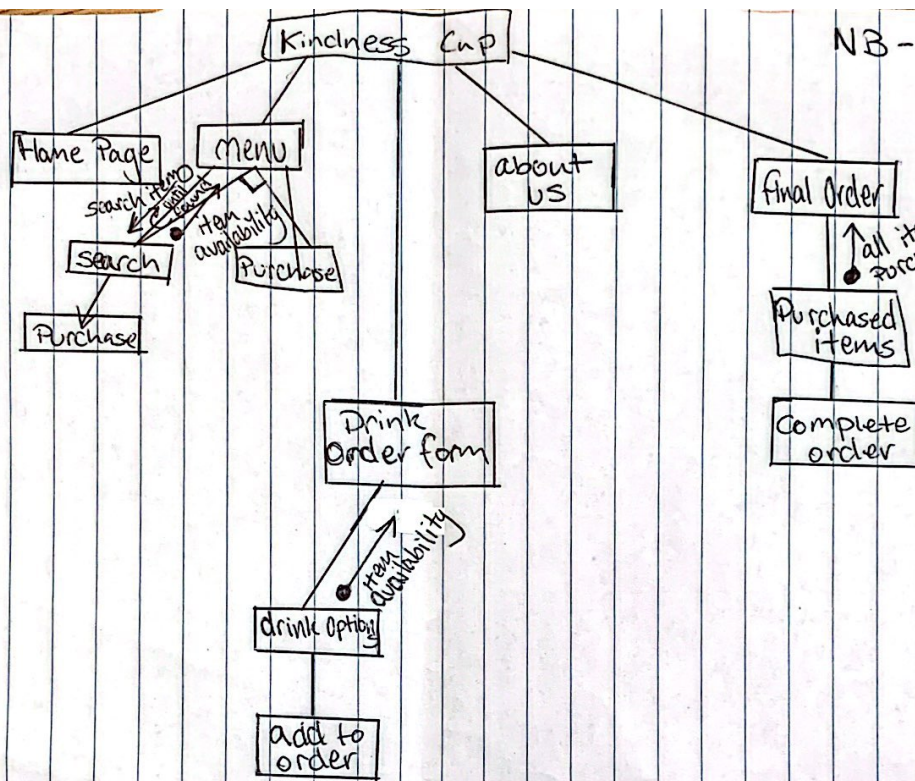 Kindness Cup
NB -
Home Page
Menu
about
us
final Order
search item
until
found
item
availability
Search
Purchase
Purchase
all it
purch
Purchased
items
Complete
order
Drink
Order form
item
availability
drink options
add to
order